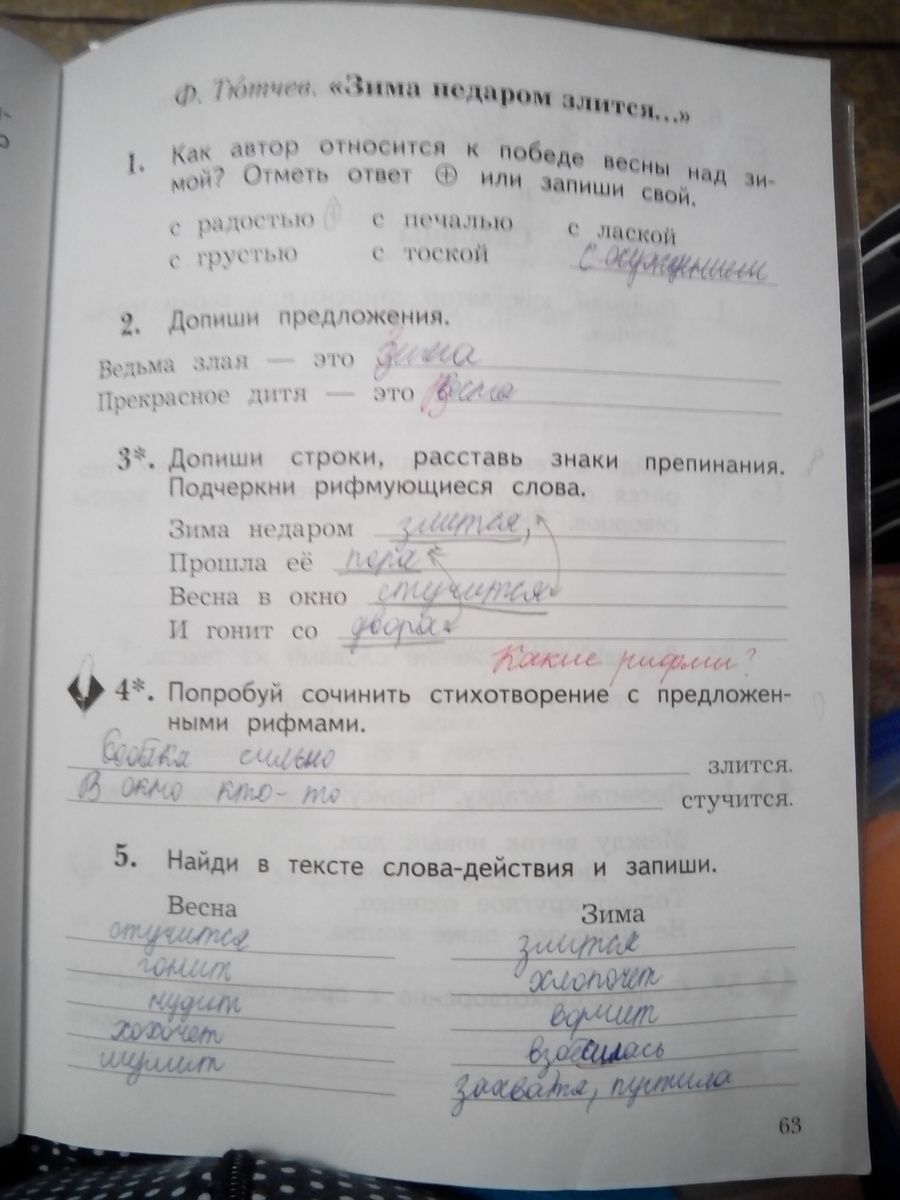 Ф. Тютчев. «Зима недаром злится...»
1. Как автор относится к победе весны над зи-
мой? Отметь ответ ⊕ или запиши свой.
с радостью с печалью с лаской
с грустью с тоской с осуждением
2. Допиши предложения.
Ведьма злая — это Зима
Прекрасное дитя — это Весна
3*. Допиши строки, расставь знаки препинания.
Подчеркни рифмующиеся слова.
Зима недаром злится,
Прошла её пора
Весна в окно стучится
И гонит со двора
Какие рифмы?
4*. Попробуй сочинить стихотворение с предложен-
ными рифмами.
сильно злится.
В окно кто-то стучится.
5. Найди в тексте слова-действия и запиши.
Весна Зима
стучится злится
гонит хлопочет
нудит ворчит
хохочет взбесилась
шумит захватя, пустила
63